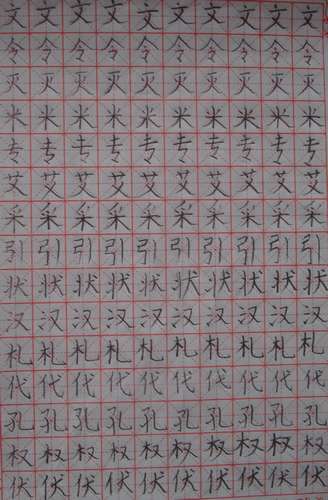 文文文文文文文文文文
令令令令令令令令令令
灭灭灭灭灭灭灭灭灭灭
米米米米米米米米米米
专专专专专专专专专专
艾艾艾艾艾艾艾艾艾艾
采采采采采采采采采采
引引引引引引引引引引
状状状状状状状状状状
汉汉汉汉汉汉汉汉汉汉
札札札札札札札札札札
代代代代代代代代代代
孔孔孔孔孔孔孔孔孔孔
权权权权权权权权权权
伏伏伏伏伏伏伏伏伏伏